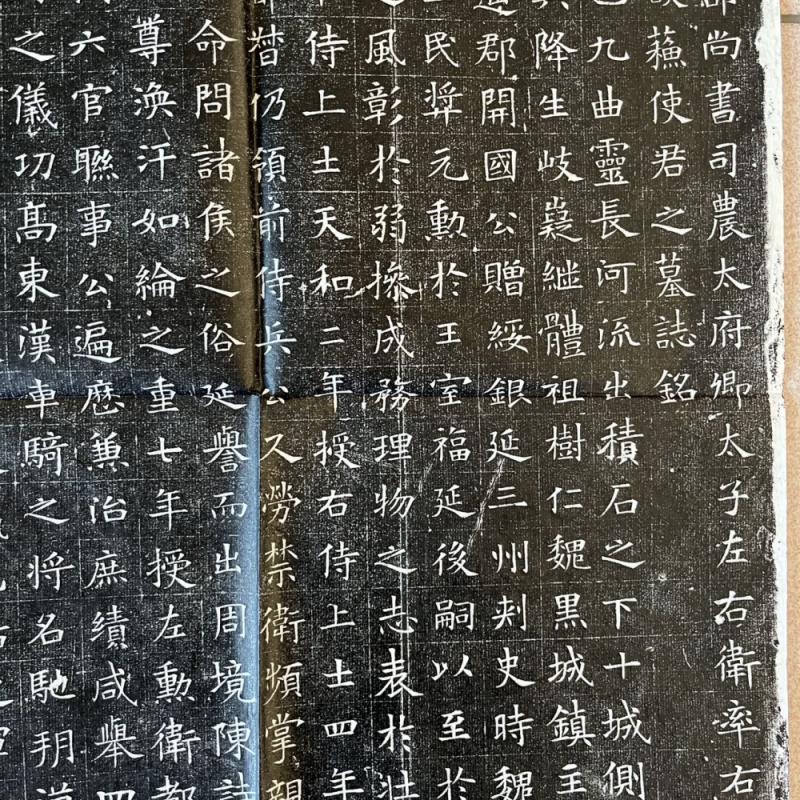 尚書司農太府卿太子左右衛率右
蘓使君之墓誌銘
九曲靈長河流出積石之下十城側
降生岐嶷継體祖樹仁魏黒城鎮主
郡開國公贈綏銀延三州刾史時魏
民奨元勳於王室福延後嗣以至於
之風彰於弱操成務理物之志表於壮
侍上士天和二年授右侍上士四年
督仍領前侍兵公久勞禁衛頻掌親
命問諸侯之俗延譽而出周境陳詩
尊渙汗如綸之重七年授左勳衛都
六官聯事公遍歴兼治庶績咸舉四
之儀功髙東漢車騎之将名馳朔漠